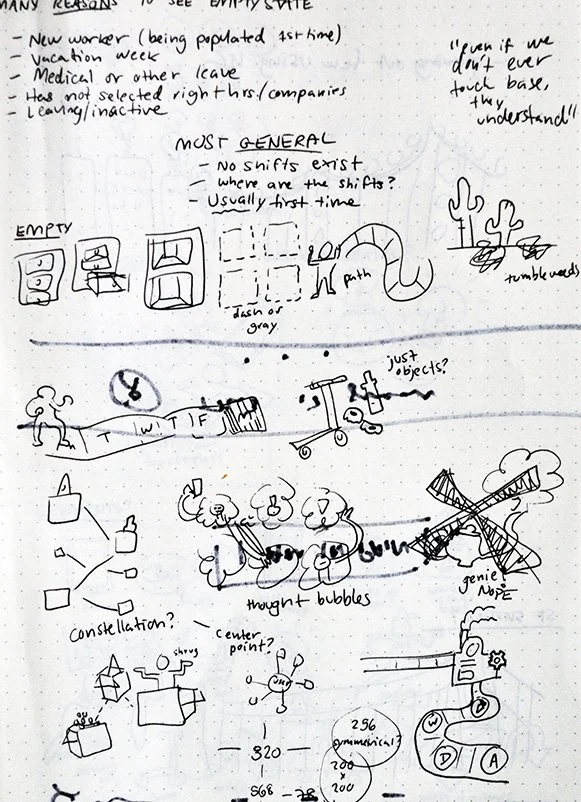 MANY REASONS TO SEE EMPTY STATE
- New worker (being populated 1st time)
- vacation week
- Medical or other leave
- Has not selected right hrs/companies
- Leaving/inactive
"even if we
don't ever
touch base,
they
understand"
MOST GENERAL
- No shifts exist
- where are the shifts?
- Usually first time
EMPTY
dash or
gray
path
tumbleweeds
just
objects?
T W T F
thought bubbles
genie?
NOPE
constellation?
center
point?
shrug
user
320
568
256
symmetrical?
200
x
200
W
D
A